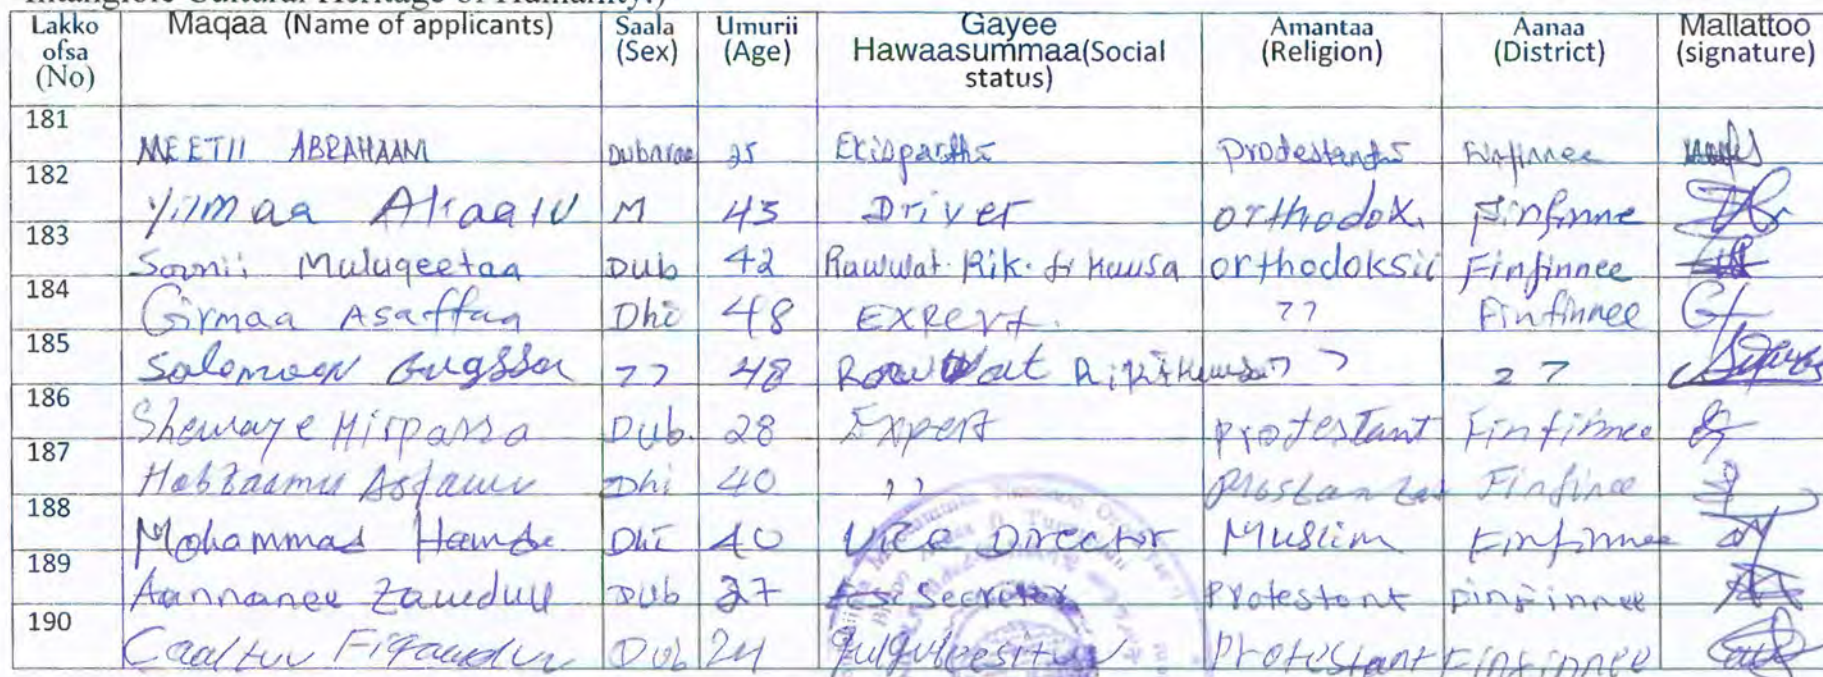 Intangible Cultural Heritage of Humanity.)
Lakkoofsa (No) Maqaa (Name of applicants) Saala (Sex) Umurii (Age) Gayee Hawaasummaa(Social status) Amantaa (Religion) Aanaa (District) Mallattoo (signature)
181 MEETII ABRAHAAM Dubaraa 25 Ekisparthi Finfinnee
182 M 43 Driver orthodox. Finfinne
183 Soonii Muluqeetaa Dub 42 Rawwat. Rik. fi Kuusa orthodoksii Finfinnee
184 Girmaa Asaffaa Dhi 48 Expert. ,, Finfinnee
185 Solomoon Gugssa ,, 48 Rawwat ,, ,,
186 Shewaye Hirpassa Dub. 28 Expert Protestant Finfinnee
187 Habtaamu Dhi 40 ,, Finfinee
188 Mohammad Dhi 40 Vice Director Muslim Finfinnee
189 Aannanee Zawduu Dub 27 Secretor Protestant Finfinnee
190 Caaltuu Fiqaaduu Dub 24 Protestant Finfinnee